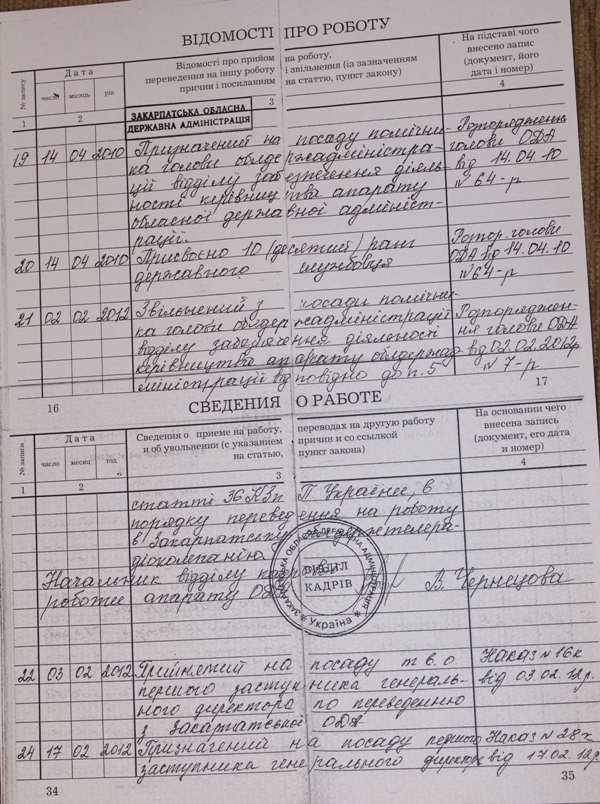 ВІДОМОСТІ ПРО РОБОТУ
№ запису
Дата
число місяць рік
Відомості про прийом на роботу,
переведення на іншу роботу і звільнення (із зазначенням
причин і посиланням на статтю, пункт закону)
На підставі чого
внесено запис
(документ, його
дата і номер)
1 2 3 4
ЗАКАРПАТСЬКА ОБЛАСНА
ДЕРЖАВНА АДМІНІСТРАЦІЯ
19 14 04 2010 Призначений на посаду помічни- Розпорядження
ка голови облдержадміністра- голови ОДА
ції відділу забезпечення діяль- від 14.04.10
ності керівництва апарату №64-р
обласної державної адмініст-
рації.
20 14 04 2010 Присвоєно 10 (десятий) ранг Розпор. голови
державного службовця ОДА від 14.04.10
№64-р
21 02 02 2012 Звільнений з посади помічни- Розпоряджен-
ка голови облдержадміністрації ня голови ОДА
відділу забезпечення діяльності від 02.02.2012р
керівництва апарату облдержад- №7-р
міністрації відповідно до п.5
16 17
СВЕДЕНИЯ О РАБОТЕ
№ записи
Дата
число месяц год
Сведения о приеме на работу, переводах на другую работу
и об увольнении (с указанием причин и со ссылкой
на статью, пункт закона)
На основании чего
внесена запись
(документ, его дата
и номер)
1 2 3 4
статті 36 КЗпП України, в
порядку переведення на роботу
в Закарпатську облдержтелера-
діокомпанію.
Начальник відділу кадрової
роботи апарату ОДА В. Чернецова
ВІДДІЛ
КАДРІВ
* Україна *
22 03 02 2012 Прийнятий на посаду т.в.о Наказ №16к
першого заступника генераль- від 03.02.12р.
ного директора по переведенню
з Закарпатської ОДА
24 17 02 2012 Призначений на посаду першого Наказ №28к
заступника генерального директора від 17.02.12р.
34 35